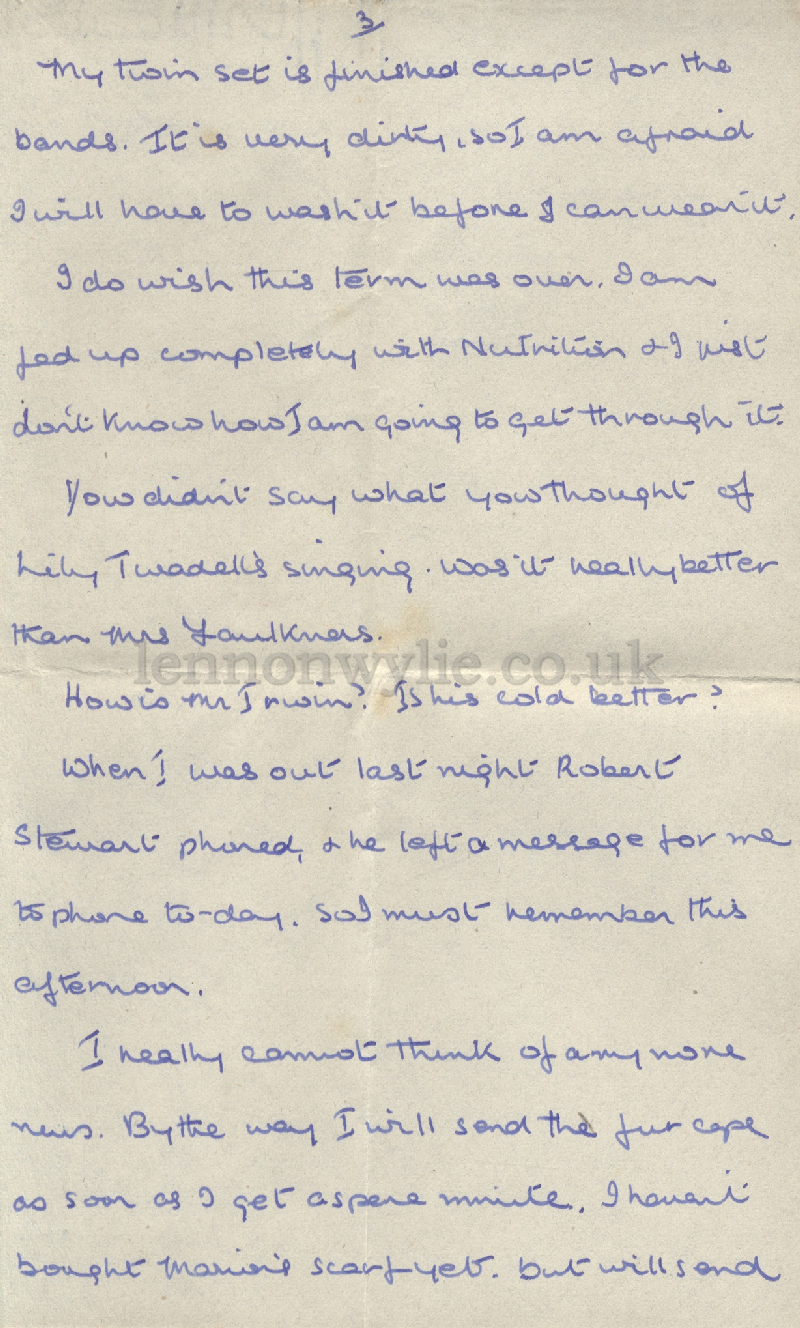 3
My twin set is finished except for the
bands. It is very dirty, so I am afraid
I will have to wash it before I can wear it.
I do wish this term was over. I am
fed up completely with Nutrition & I just
don't know how I am going to get through it.
You didn't say what you thought of
Lily Twadell's singing. Was it really better
than Mrs Faulkners.
lennonwylie.co.uk
How is Mr Irwin? Is his cold better?
When I was out last night Robert
Stewart phoned, & he left a message for me
to phone to-day. So I must remember this
afternoon.
I really cannot think of any more
news. By the way I will send the fur cape
as soon as I get a spare minute. I haven't
bought scarf yet. but will send